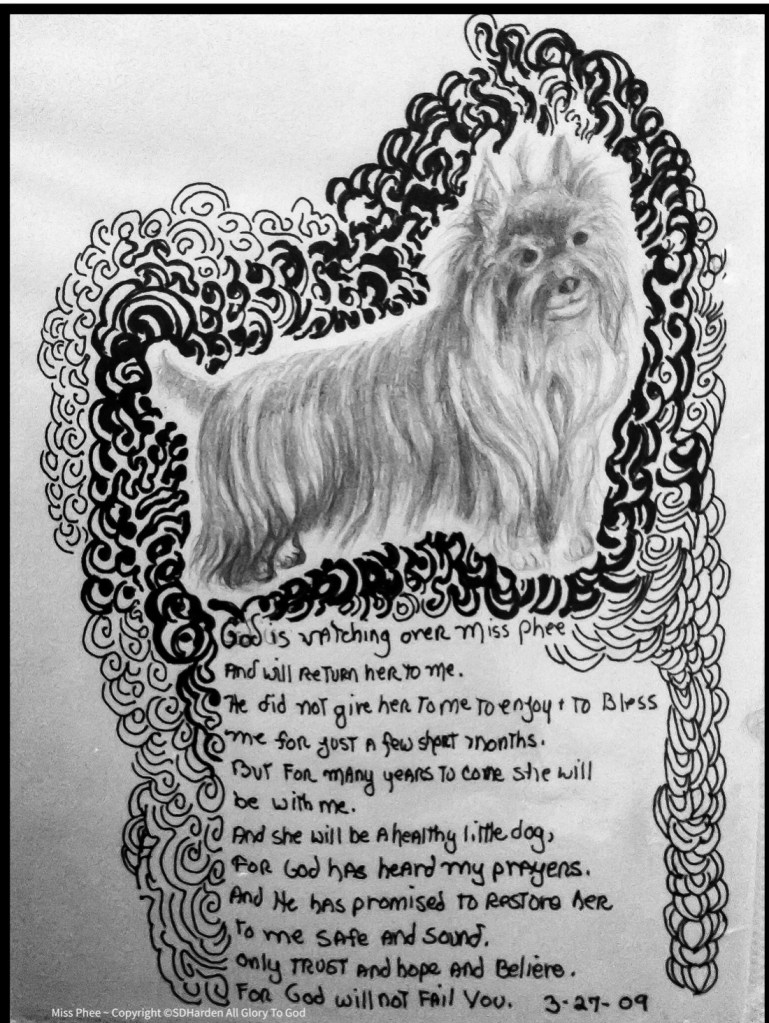 God is watching over Miss Phee
And will Return her to me.
He did not give her to me to enjoy + to Bless
me for just a few short months.
But for many years to come she will
be with me.
And she will be A healthy little dog,
For God has heard my prayers.
And He has promised to Restore her
to me safe and sound.
Only TRUST and hope and Believe.
For God will not Fail You. 3-27-09
Miss Phee ~ Copyright ©SDHarden All Glory To God